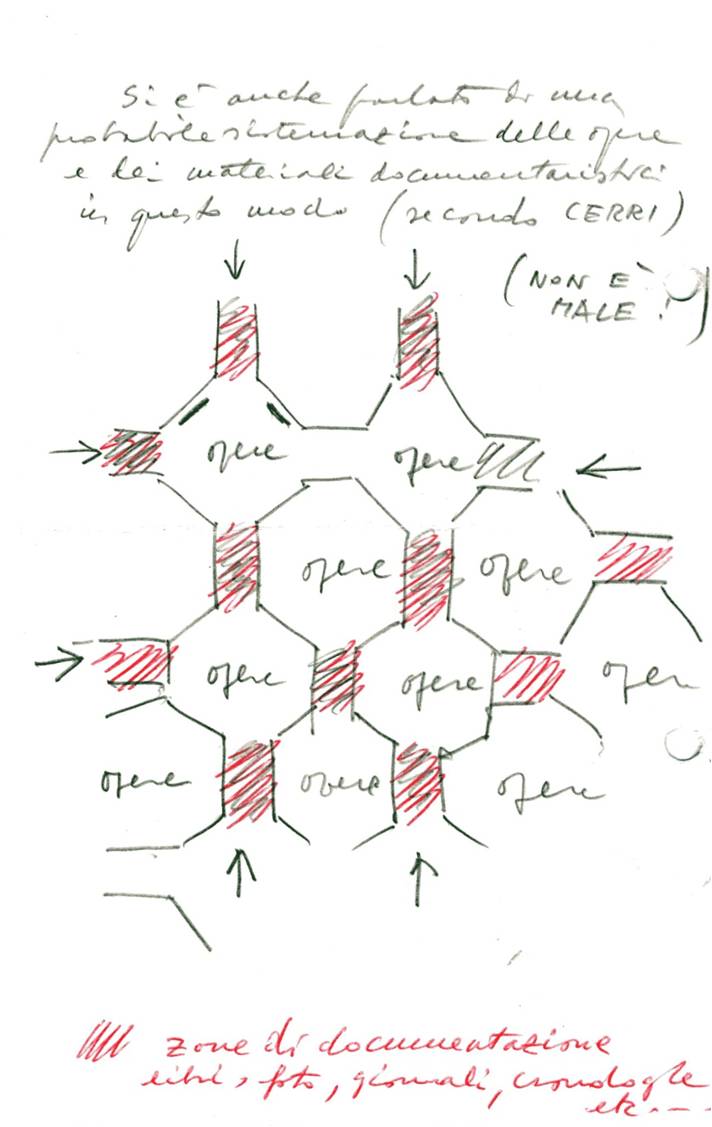 Si è anche parlato di una
probabile sistemazione delle opere
e dei materiali documentaristici
in questo modo (secondo CERRI)
(NON È
MALE!)
opere
opere
opere
opere
opere
opere
oper
opere
opere
opere
zone di documentazione
libri, foto, giornali, cronologie
etc---